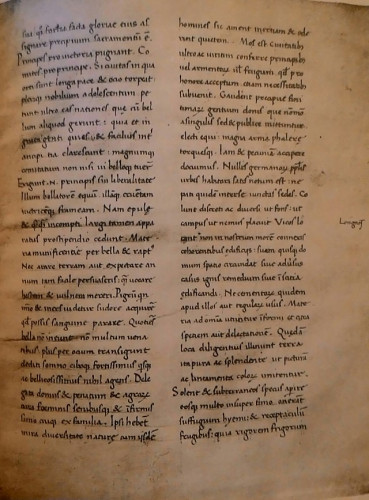 sua q; fortia facta gloriae eius as
signare precipuum sacramentū ē.
Principes pro uictoria pugnant. Co
mites pro principe. Si ciuitas in qua
orti sunt longa pace & otio torpeat:
pleriq; nobilium adolescentium pe
tunt ultro eas nationes que tū bel
lum aliquod gerunt: quia et in
grata genti quies; & facilius int̄
ancipitia clarescunt: magnumq;
comitatum non nisi ui belloq; tuent̄
Exigunt N. principis sui liberalitate
Illum bellatorem equū. illāq; cruentam
uictricēq; frameam. Nam epulę
& incompti largi tamen appa
ratus pro stipendio cedunt. Mate
ria munificentiae per bella & rapt'
Nec arare terram aut expectare an
num tam facile persuaseris; quā uocare
hostem & uulnera mereri. Pigrū qn
immo & iners uidetur sudore acquirer̄
qđ possis sanguine parare. Quotiēs
bella nō ineunt no multum uena
tibus. plus per otium transigunt
dediti somno. cibisq; fortissimus qsq;
ac bellicosissimus nihil agens. Dele
gata domus & penatium & agrorū
cura feminis senibusq; & īfirmis
simo cuiq; ex familia. Ipsi hebēt
mira diuersitate naturę cum iidē
homines sic ament inertiam & ode
rint quietem. Mos est ciuitatib;
ultro ac uiritim conferre principib;
uel armentor uł frugum. qđ pro
honore acceptum etiam necessitatib;
subuenit. Gaudent precipue fini
timarum gentium donis que nōmo
a singulis sed & publice mittuntur.
electi equi. magna arma phalere
torquesq;. Iam & pecuniā accipere
docuimus. Nullas germanor̄ ppłis
urbes habitari satis notum est: ne
pati quidē inter se iunctas sedes. Co
lunt discreti ac diuersi ut fons: ut
campus ut nemus placuit. Vicos lo
cant non in nostrum morē connexis
& coherentibus edificiis: suam quisq; do
mum spatio circundat siue aduersus
casus ignis remedium siue īscitia
ędificandi. Ne cementorū quidem
apud illos aut tegularum usus. Mate
ria ad omnia utuntur īformi & citra
speciem aut delectationē. Quędā
loca diligentius illinunt terra
ita pura ac splendente ut picturā
ac lineamenta colorū imitentur.
Solent & subterraneos specus aperire
eosq; multo insuper fimo onerāt
suffugium hyemi & receptaculū
frugibus: quia rigorem frigorum